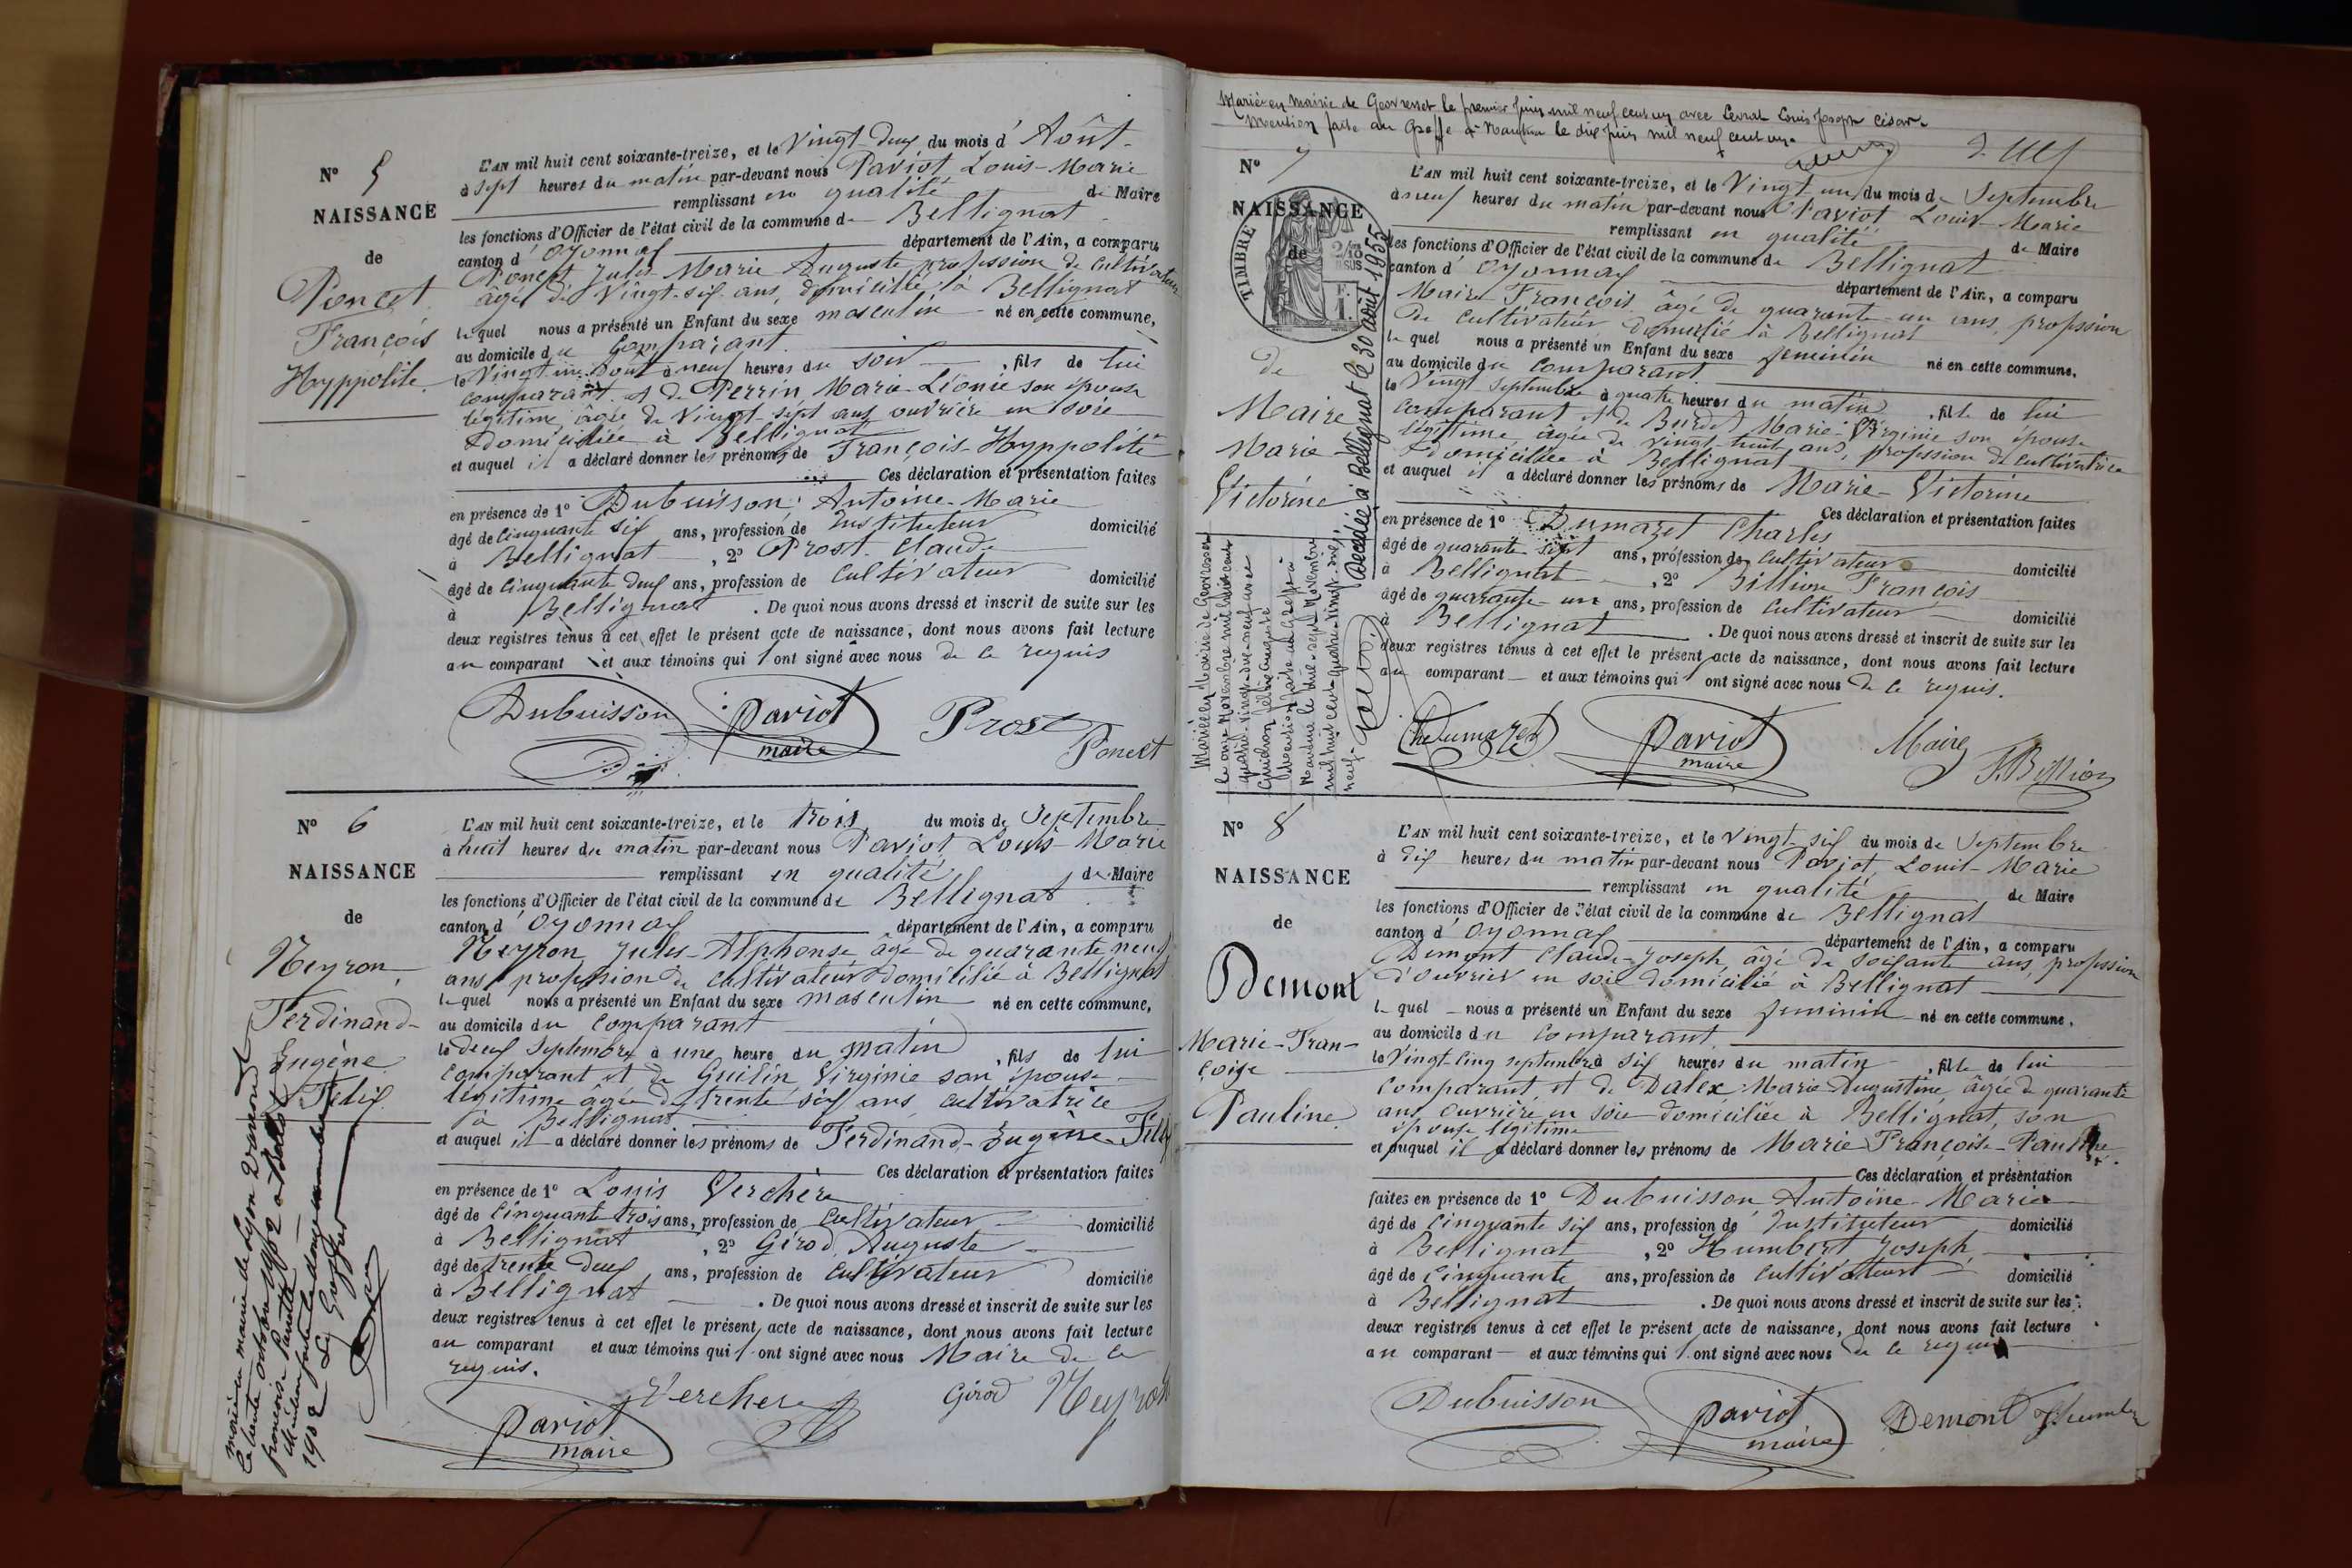 N° 5
NAISSANCE
de
Poncet
François
Hyppolite
L'AN mil huit cent soixante-treize, et le Vingt-deux du mois d'Août
à sept heures du matin par-devant nous Pariot, Louis-Marie
remplissant en qualité de Maire
les fonctions d'Officier de l'état civil de la commune de Bellignat
canton d'Oyonnax département de l'Ain, a comparu
Poncet Jules-Marie Auguste, profession de Cultivateur
âgé de Vingt-six ans, domicilié à Bellignat
lequel nous a présenté un Enfant du sexe masculin né en cette commune,
au domicile du Comparant
le Vingt un Août à neuf heures du soir, fils de lui
comparant et de Perrin Marie-Léonie son épouse
légitime, âgée de Vingt sept ans ouvrière en soie
domiciliée à Bellignat
et auquel il a déclaré donner les prénoms de François-Hyppolite
Ces déclaration et présentation faites
en présence de 1° Dubuisson Antoine-Marie
âgé de Cinquante six ans, profession de Instituteur domicilié
à Bellignat, 2° Prost Claude
âgé de Cinquante deux ans, profession de Cultivateur domicilié
à Bellignat. De quoi nous avons dressé et inscrit de suite sur les
deux registres tenus à cet effet le présent acte de naissance, dont nous avons fait lecture
au comparant et aux témoins qui l'ont signé avec nous de ce requis
Dubuisson Pariot Prost
maire Poncet
N° 6
NAISSANCE
de
Neyron
Ferdinand-
Eugène
Félix
marié en mairie de Lyon 2e
le trente octobre 1902 à
françoise
Mention faite le douze novembre
1902 Le Greffier
L'AN mil huit cent soixante-treize, et le trois du mois de Septembre
à huit heures du matin par-devant nous Pariot Louis-Marie
remplissant en qualité de Maire
les fonctions d'Officier de l'état civil de la commune de Bellignat
canton d'Oyonnax département de l'Ain, a comparu
Neyron, Jules-Alphonse âgé de quarante neuf
ans profession de Cultivateur domicilié à Bellignat
lequel nous a présenté un Enfant du sexe masculin né en cette commune,
au domicile du Comparant
le deux Septembre à une heure du matin, fils de lui
Comparant et de Guilin Virginie son épouse
légitime âgée de trente six ans cultivatrice
à Bellignat
et auquel il a déclaré donner les prénoms de Ferdinand-Eugène-Félix
Ces déclaration et présentation faites
en présence de 1° Louis Verchère
âgé de Cinquante trois ans, profession de Cultivateur domicilié
à Bellignat, 2° Girod, Auguste
âgé de trente deux ans, profession de Cultivateur domicilié
à Bellignat. De quoi nous avons dressé et inscrit de suite sur les
deux registres tenus à cet effet le présent acte de naissance, dont nous avons fait lecture
au comparant et aux témoins qui l'ont signé avec nous Maire de ce
requis.
Verchere Girod Neyron
Pariot
maire
Mariée en Mairie de Geovresset le premier Juin mil neuf cent un avec Levrat Louis Joseph César.
Mention faite au Greffe de Nantua le dix Juin mil neuf cent un.
N° 7
NAISSANCE
de
TIMBRE
de
Maire
Marie-
Victorine
Décédée à Bellignat le 30 août 1955
Mariée en Mairie de Geovresset
le onze Novembre mil huit cent
quatre-vingt-dix-neuf avec
Mention faite au Greffe à
Nantua le dix-sept Novembre
mil huit cent quatre-vingt-dix-
neuf
L'AN mil huit cent soixante-treize, et le Vingt un du mois de Septembre
à neuf heures du matin par-devant nous Pariot Louis-Marie
remplissant en qualité de Maire
les fonctions d'Officier de l'état civil de la commune de Bellignat
canton d'Oyonnax département de l'Ain, a comparu
Maire François âgé de quarante-un ans, profession
de Cultivateur domicilié à Bellignat
lequel nous a présenté un Enfant du sexe féminin né en cette commune,
au domicile du Comparant
le Vingt Septembre à quatre heures du matin, fille de lui
comparant et de Burdet Marie-Virginie son épouse
légitime, âgée de vingt-huit ans, profession de Cultivatrice
domiciliée à Bellignat
et auquel il a déclaré donner les prénoms de Marie-Victorine
Ces déclaration et présentation faites
en présence de 1° Dumazet Charles
âgé de quarante sept ans, profession de Cultivateur domicilié
à Bellignat, 2° Billion François
âgé de quarante-un ans, profession de Cultivateur domicilié
à Bellignat. De quoi nous avons dressé et inscrit de suite sur les
deux registres tenus à cet effet le présent acte de naissance, dont nous avons fait lecture
au comparant et aux témoins qui l'ont signé avec nous de ce requis.
Ch Dumazet Pariot Maire
maire F. Billion
N° 8
NAISSANCE
de
Demont
Marie-Fran-
çoise
Pauline
L'AN mil huit cent soixante-treize, et le Vingt-six du mois de Septembre
à dix heures du matin par-devant nous Pariot, Louis-Marie
remplissant en qualité de Maire
les fonctions d'Officier de l'état civil de la commune de Bellignat
canton d'Oyonnax département de l'Ain, a comparu
Demont Claude-Joseph, âgé de soixante ans, profession
d'ouvrier en soie domicilié à Bellignat
lequel nous a présenté un Enfant du sexe féminin né en cette commune,
au domicile du Comparant
le Vingt-Cinq septembre à six heures du matin, fille de lui
Comparant, et de Dalex, Marie-Augustine, âgée de quarante
ans, ouvrière en soie domiciliée à Bellignat, son
épouse légitime
et auquel il a déclaré donner les prénoms de Marie Françoise-Pauline
Ces déclaration et présentation
faites en présence de 1° Dubuisson Antoine-Marie
âgé de Cinquante six ans, profession de Instituteur domicilié
à Bellignat, 2° Humbert Joseph
âgé de Cinquante ans, profession de Cultivateur domicilié
à Bellignat. De quoi nous avons dressé et inscrit de suite sur les
deux registres tenus à cet effet le présent acte de naissance, dont nous avons fait lecture
au comparant et aux témoins qui l'ont signé avec nous de ce requis
Dubuisson Pariot Demont Humbert
maire